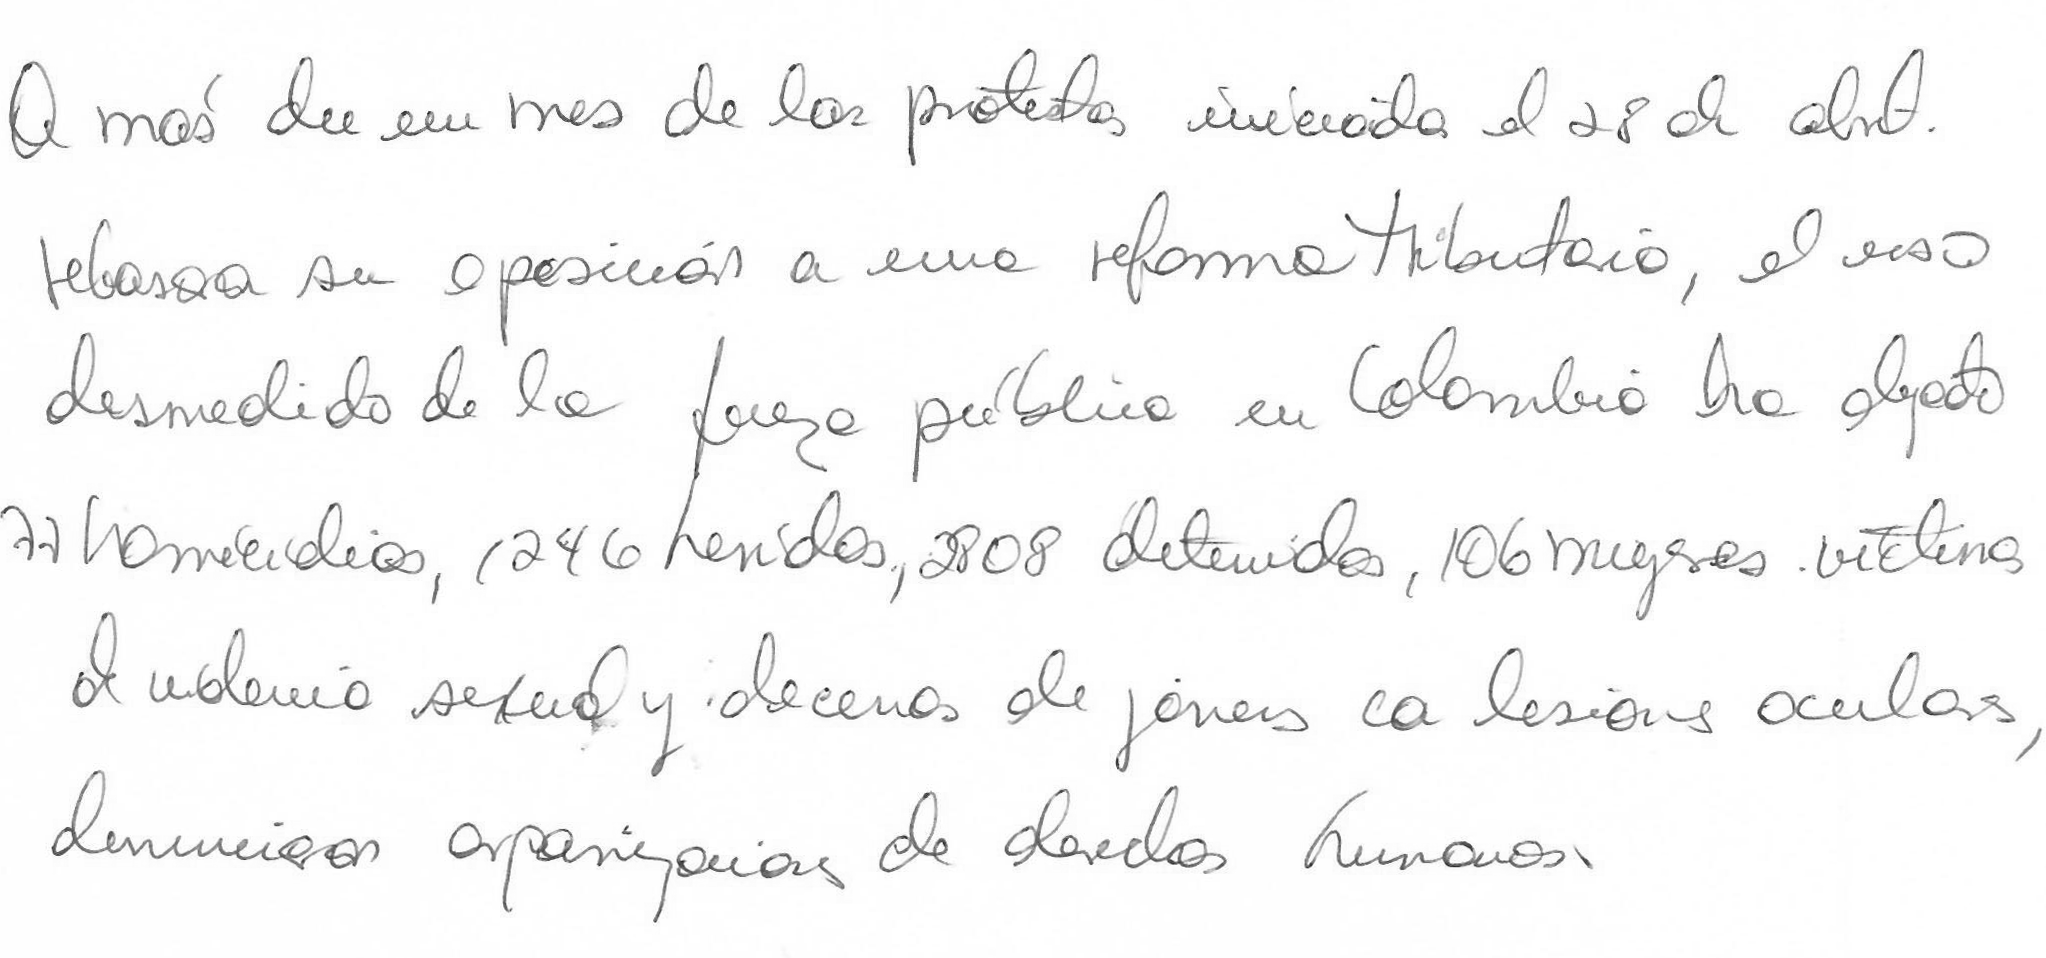 A más de un mes de las protestas iniciada el 28 de abril.
rebasar su oposición a una reforma tributaria, el uso
desmedido de la fuerza pública en Colombia ha dejado
77 homicidios, 1246 heridos, 2808 detenidos, 106 mujeres víctimas
de violencia sexual y decenas de jóvenes con lesiones oculares,
denuncian organizaciones de derechos humanos.